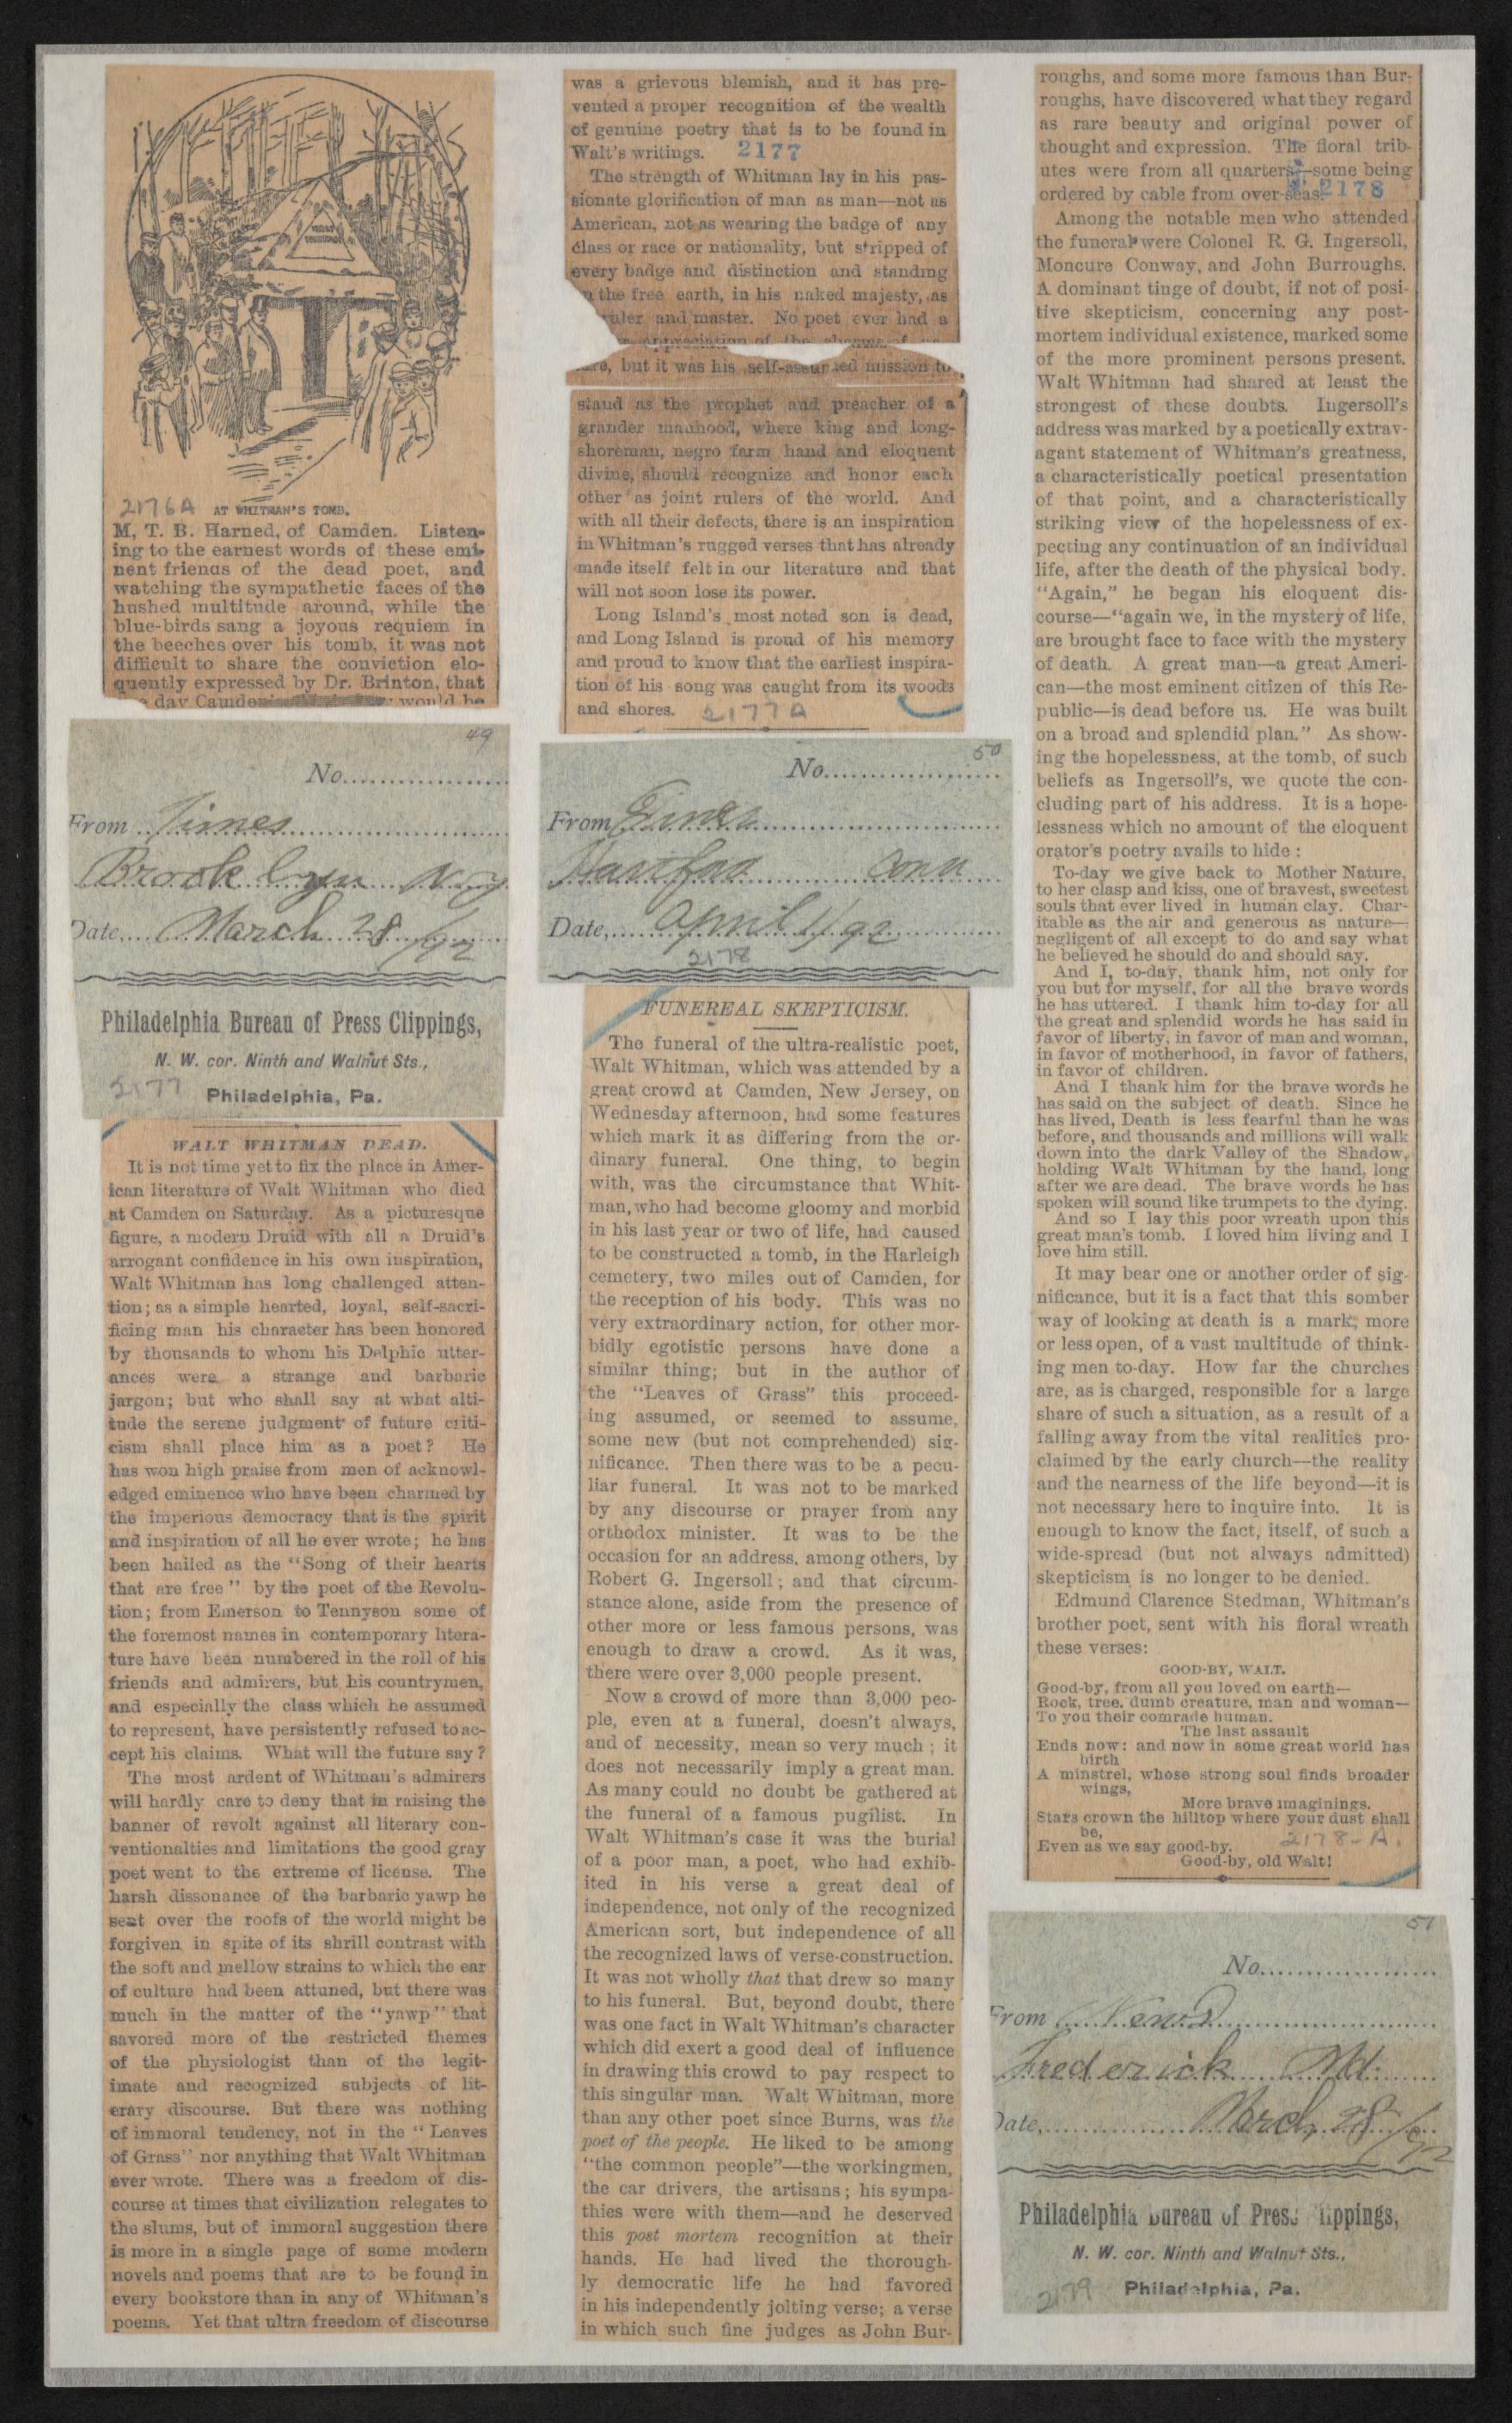 2176A AT WHITMAN'S TOMB.
M, T. B. Harned, of Camden. Listen-
ing to the earnest words of these emi-
nent friends of the dead poet, and
watching the sympathetic faces of the
hushed multitude around, while the
blue-birds sang a joyous requiem in
the beeches over his tomb, it was not
difficult to share the conviction elo-
quently expressed by Dr. Brinton, that
day Camden would be
49
No.
From Times
Brooklyn N.Y
Date, March 28/92
Philadelphia Bureau of Press Clippings,
N. W. cor. Ninth and Walnut Sts.,
2177 Philadelphia, Pa.
WALT WHITMAN DEAD.
It is not time yet to fix the place in Amer-
ican literature of Walt Whitman who died
at Camden on Saturday. As a picturesque
figure, a modern Druid with all a Druid's
arrogant confidence in his own inspiration,
Walt Whitman has long challenged atten-
tion; as a simple hearted, loyal, self-sacri-
ficing man his character has been honored
by thousands to whom his Delphic utter-
ances were a strange and barbaric
jargon; but who shall say at what alti-
tude the serene judgment of future criti-
cism shall place him as a poet? He
has won high praise from men of acknowl-
edged eminence who have been charmed by
the imperious democracy that is the spirit
and inspiration of all he ever wrote; he has
been hailed as the "Song of their hearts
that are free" by the poet of the Revolu-
tion; from Emerson to Tennyson some of
the foremost names in contemporary litera-
ture have been numbered in the roll of his
friends and admirers, but his countrymen,
and especially the class which he assumed
to represent, have persistently refused to ac-
cept his claims. What will the future say?
The most ardent of Whitman's admirers
will hardly care to deny that in raising the
banner of revolt against all literary con-
ventionalties and limitations the good gray
poet went to the extreme of license. The
harsh dissonance of the barbaric yawp he
sent over the roofs of the world might be
forgiven in spite of its shrill contrast with
the soft and mellow strains to which the ear
of culture had been attuned, but there was
much in the matter of the "yawp" that
savored more of the restricted themes
of the physiologist than of the legit-
imate and recognized subjects of lit-
erary discourse. But there was nothing
of immoral tendency, not in the "Leaves
of Grass" nor anything that Walt Whitman
ever wrote. There was a freedom of dis-
course at times that civilization relegates to
the slums, but of immoral suggestion there
is more in a single page of some modern
novels and poems that are to be found in
every bookstore than in any of Whitman's
poems. Yet that ultra freedom of discourse
was a grievous blemish, and it has pre-
vented a proper recognition of the wealth
of genuine poetry that is to be found in
Walt's writings. 2177
The strength of Whitman lay in his pas-
sionate glorification of man as man—not as
American, not as wearing the badge of any
class or race or nationality, but stripped of
every badge and distinction and standing
the free earth, in his naked majesty, as
ruler and master. No poet ever had a
appreciation of the charms of
but it was his self-assumed mission to
stand as the prophet and preacher of a
grander manhood, where king and long-
shoreman, negro farm hand and eloquent
divine, should recognize and honor each
other as joint rulers of the world. And
with all their defects, there is an inspiration
in Whitman's rugged verses that has already
made itself felt in our literature and that
will not soon lose its power.
Long Island's most noted son is dead,
and Long Island is proud of his memory
and proud to know that the earliest inspira-
tion of his song was caught from its woods
and shores. 2177A
50
No.
From Times
Hartford Conn
Date, April 1/92
2178
FUNEREAL SKEPTICISM.
The funeral of the ultra-realistic poet,
Walt Whitman, which was attended by a
great crowd at Camden, New Jersey, on
Wednesday afternoon, had some features
which mark it as differing from the or-
dinary funeral. One thing, to begin
with, was the circumstance that Whit-
man, who had become gloomy and morbid
in his last year or two of life, had caused
to be constructed a tomb, in the Harleigh
cemetery, two miles out of Camden, for
the reception of his body. This was no
very extraordinary action, for other mor-
bidly egotistic persons have done a
similar thing; but in the author of
the "Leaves of Grass" this proceed-
ing assumed, or seemed to assume,
some new (but not comprehended) sig-
nificance. Then there was to be a pecu-
liar funeral. It was not to be marked
by any discourse or prayer from any
orthodox minister. It was to be the
occasion for an address, among others, by
Robert G. Ingersoll; and that circum-
stance alone, aside from the presence of
other more or less famous persons, was
enough to draw a crowd. As it was,
there were over 3,000 people present.
Now a crowd of more than 3,000 peo-
ple, even at a funeral, doesn't always,
and of necessity, mean so very much; it
does not necessarily imply a great man.
As many could no doubt be gathered at
the funeral of a famous pugilist. In
Walt Whitman's case it was the burial
of a poor man, a poet, who had exhib-
ited in his verse a great deal of
independence, not only of the recognized
American sort, but independence of all
the recognized laws of verse-construction.
It was not wholly that that drew so many
to his funeral. But, beyond doubt, there
was one fact in Walt Whitman's character
which did exert a good deal of influence
in drawing this crowd to pay respect to
this singular man. Walt Whitman, more
than any other poet since Burns, was the
poet of the people. He liked to be among
"the common people"—the workingmen,
the car drivers, the artisans; his sympa-
thies were with them—and he deserved
this post mortem recognition at their
hands. He had lived the thorough-
ly democratic life he had favored
in his independently jolting verse; a verse
in which such fine judges as John Bur-
roughs, and some more famous than Bur-
roughs, have discovered what they regard
as rare beauty and original power of
thought and expression. The floral trib-
utes were from all quarters—some being
ordered by cable from over-seas. 2178
Among the notable men who attended
the funeral were Colonel R. G. Ingersoll,
Moncure Conway, and John Burroughs.
A dominant tinge of doubt, if not of posi-
tive skepticism, concerning any post-
mortem individual existence, marked some
of the more prominent persons present.
Walt Whitman had shared at least the
strongest of these doubts. Ingersoll's
address was marked by a poetically extrav-
agant statement of Whitman's greatness,
a characteristically poetical presentation
of that point, and a characteristically
striking view of the hopelessness of ex-
pecting any continuation of an individual
life, after the death of the physical body.
"Again," he began his eloquent dis-
course—"again we, in the mystery of life,
are brought face to face with the mystery
of death. A great man—a great Ameri-
can—the most eminent citizen of this Re-
public—is dead before us. He was built
on a broad and splendid plan." As show-
ing the hopelessness, at the tomb, of such
beliefs as Ingersoll's, we quote the con-
cluding part of his address. It is a hope-
lessness which no amount of the eloquent
orator's poetry avails to hide:
To-day we give back to Mother Nature,
to her clasp and kiss, one of bravest, sweetest
souls that ever lived in human clay. Char-
itable as the air and generous as nature—
negligent of all except to do and say what
he believed he should do and should say.
And I, to-day, thank him, not only for
you but for myself, for all the brave words
he has uttered. I thank him to-day for all
the great and splendid words he has said in
favor of liberty, in favor of man and woman,
in favor of motherhood, in favor of fathers,
in favor of children.
And I thank him for the brave words he
has said on the subject of death. Since he
has lived, Death is less fearful than he was
before, and thousands and millions will walk
down into the dark Valley of the Shadow,
holding Walt Whitman by the hand, long
after we are dead. The brave words he has
spoken will sound like trumpets to the dying.
And so I lay this poor wreath upon this
great man's tomb. I loved him living and I
love him still.
It may bear one or another order of sig-
nificance, but it is a fact that this somber
way of looking at death is a mark, more
or less open, of a vast multitude of think-
ing men to-day. How far the churches
are, as is charged, responsible for a large
share of such a situation, as a result of a
falling away from the vital realities pro-
claimed by the early church—the reality
and the nearness of the life beyond—it is
not necessary here to inquire into. It is
enough to know the fact, itself, of such a
wide-spread (but not always admitted)
skepticism is no longer to be denied.
Edmund Clarence Stedman, Whitman's
brother poet, sent with his floral wreath
these verses:
GOOD-BY, WALT.
Good-by, from all you loved on earth—
Rock, tree, dumb creature, man and woman—
To you their comrade human.
The last assault
Ends now: and now in some great world has
birth
A minstrel, whose strong soul finds broader
wings,
More brave imaginings.
Stars crown the hilltop where your dust shall
be,
Even as we say good-by. 2178-A.
Good-by, old Walt!
51
No.
From News
Frederick Md.
Date, March 28/92
Philadelphia Bureau of Press Clippings,
N. W. cor. Ninth and Walnut Sts.,
2179 Philadelphia, Pa.